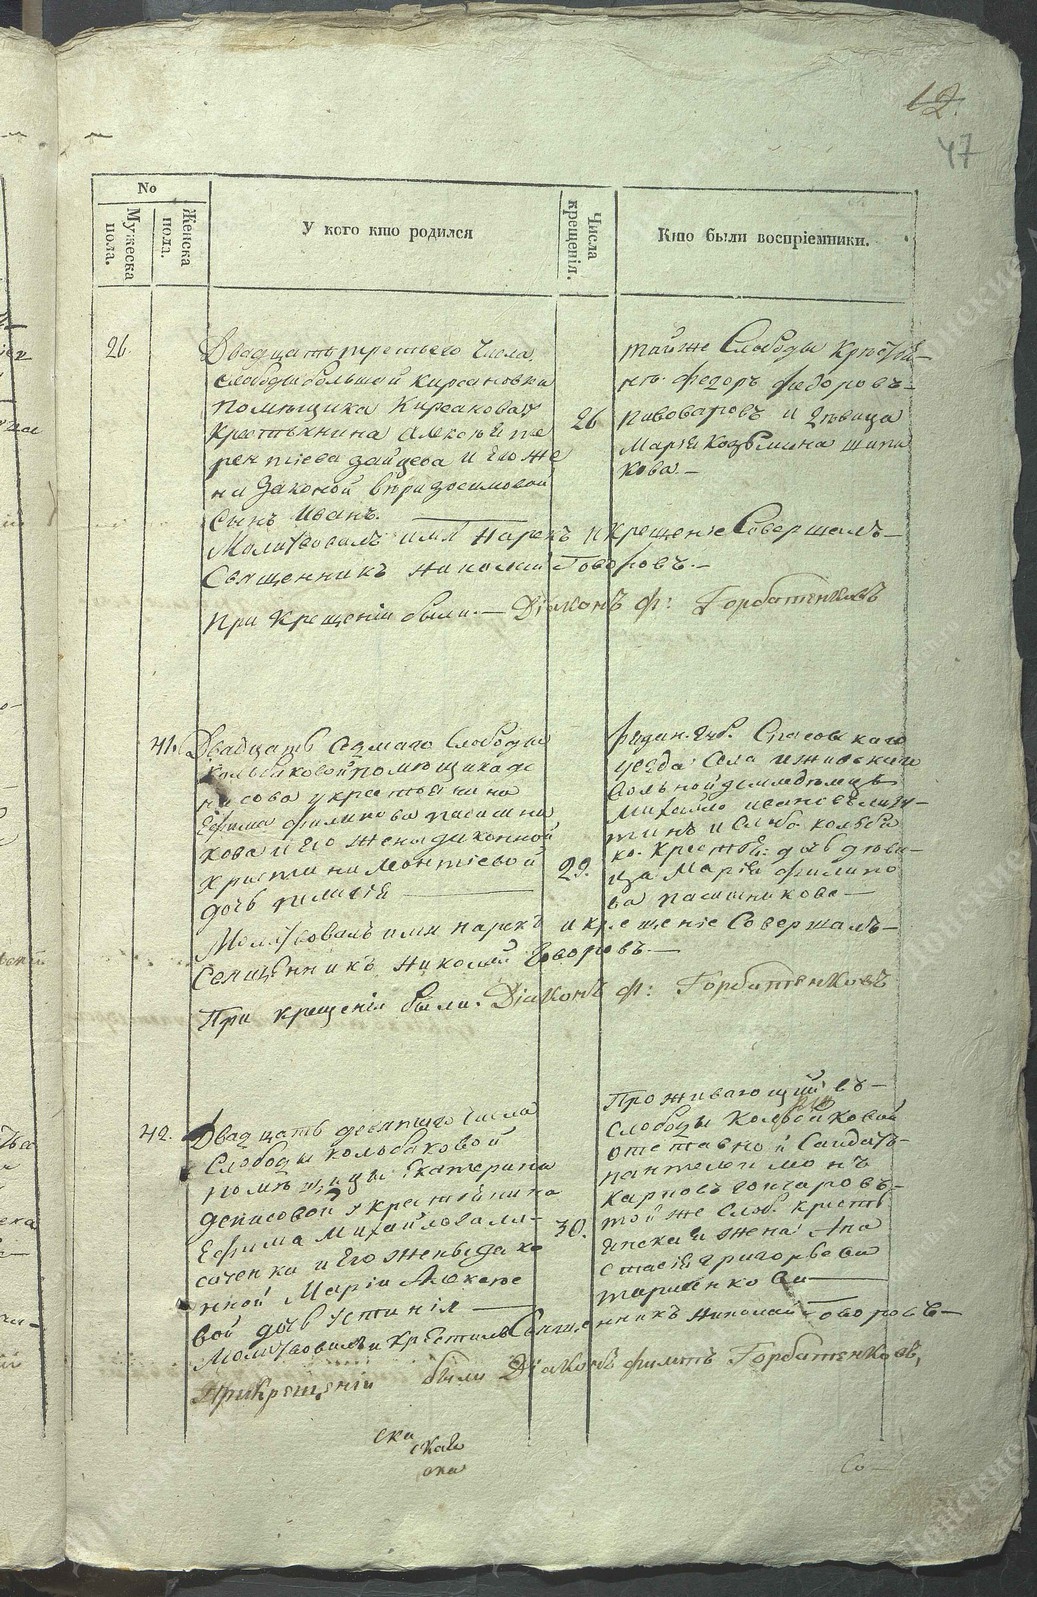 12.
47
No
Мужеска пола.
Женска пола.
У кого кто родился
Числа крещенія.
Кто были воспріемники.
26.
Двадцать третьего числа
слободы большой Кирсановки
помещика Кирсанова
Крестьянина Алексея те
рентіева Зайцева и его же
ни Законой
Сынъ Иванъ.
26
тойже Слободы Крестья
нъ Федоръ Федоровъ
Пивоваровъ и девица
Марія Козьмина
кова
Молитвовалъ имя Нарекъ и Крещеніе Совершалъ
Священникъ Николай Говоровъ.
При Крещеніи были Діаконъ ф: Горбатенковъ
41.
Двадцать Седмаго Слободы
Колбаковой помещика де
нисова у крестьянина
Ефима Филипова пасешни
кова и Его жены Законной
Христины Леонтіевой
дочь
29.
Спасовскаго
уезда Села
вольной земледелецъ
Михайло Иванов
и Слоб. Колбаки
ко. Крестьян: дочь деви
ца Марія Филипо
ва пасешникова
Молитвовалъ имя нарекъ и крещеніе Совершалъ
Священникъ Николай Говоровъ.
При крещеніи были. Діаконъ ф: Горбатенковъ
42.
Двадцать девятаго Числа
Слободы Колбаковой
помещицы Екатерины
денисовой у крестьянина
Ефима Михайлова ля
саченка и Его жены зако
нной Маріи Алексее
вой дочь Устинія
30.
Проживающий въ
слободы Колбаковой
отставной Салдатъ
пантелеимонъ
Карповъ Гончаровъ
той же Слоб. крестья
нска жена Ана
стасія Григорьева
Молитвовалъ и Крестилъ Священникъ Николай Говоровъ
При Крещеніи были Діаконъ филипъ Горбатенковъ,
ска
скаго
ска
Со